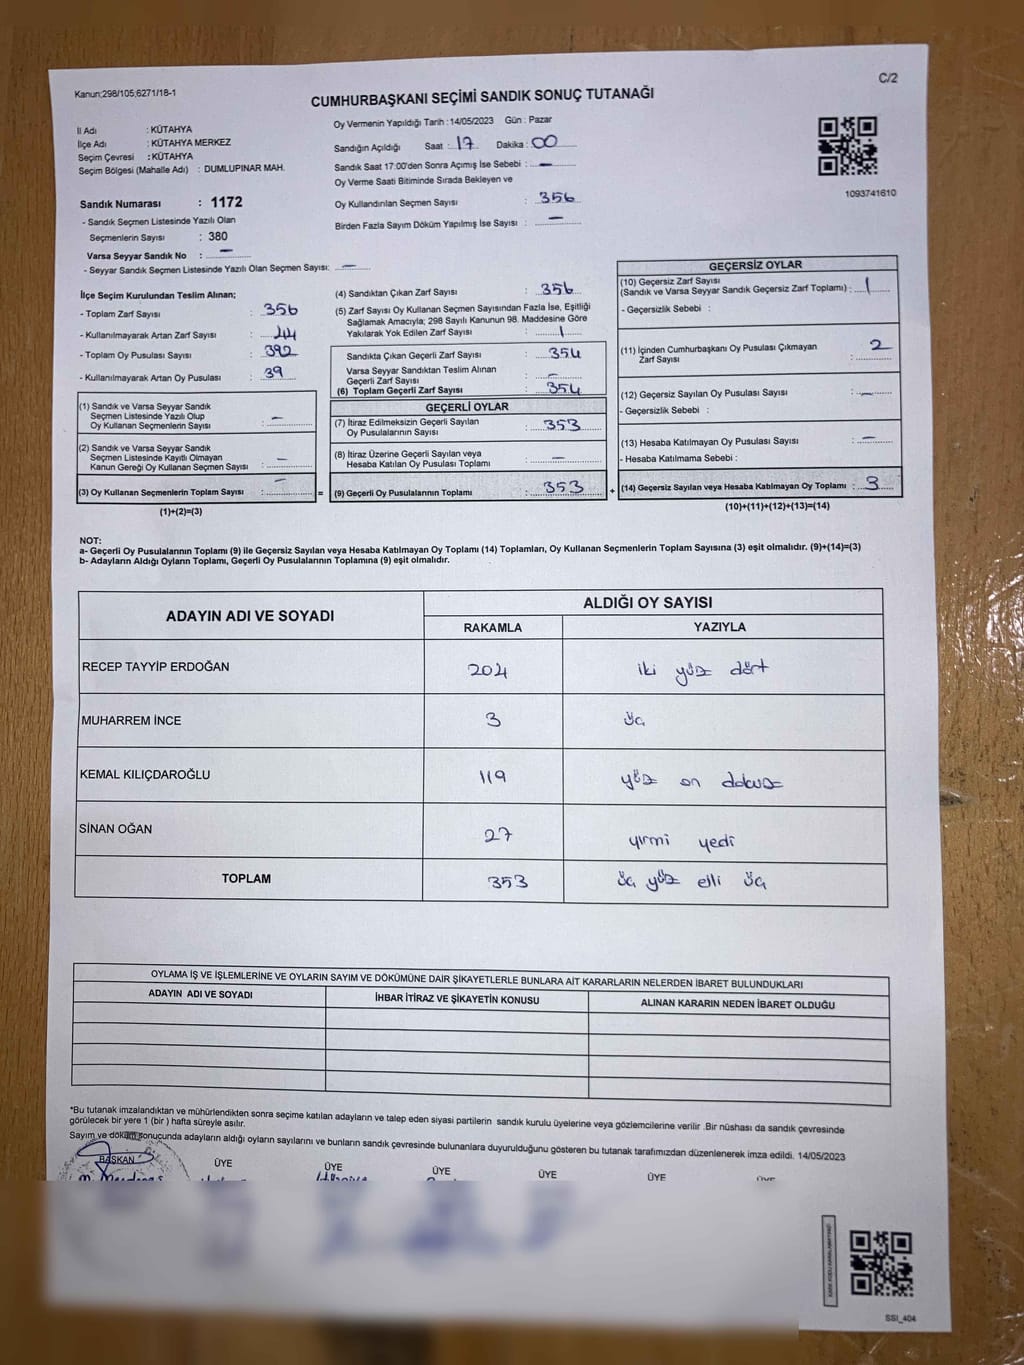 Kanun;298/105;6271/18-1
C/2
CUMHURBAŞKANI SEÇİMİ SANDIK SONUÇ TUTANAĞI
İl Adı : KÜTAHYA
İlçe Adı : KÜTAHYA MERKEZ
Seçim Çevresi : KÜTAHYA
Seçim Bölgesi (Mahalle Adı) : DUMLUPINAR MAH.
Oy Vermenin Yapıldığı Tarih : 14/05/2023 Gün : Pazar
Sandığın Açıldığı Saat : 17 Dakika : 00
Sandık Saat 17:00'den Sonra Açımış İse Sebebi : —
Oy Verme Saati Bitiminde Sırada Bekleyen ve
Oy Kullandırılan Seçmen Sayısı : 356
Birden Fazla Sayım Döküm Yapılmış İse Sayısı : —
1093741610
Sandık Numarası : 1172
- Sandık Seçmen Listesinde Yazılı Olan
Seçmenlerin Sayısı : 380
Varsa Seyyar Sandık No : —
- Seyyar Sandık Seçmen Listesinde Yazılı Olan Seçmen Sayısı: —
İlçe Seçim Kurulundan Teslim Alınan;
- Toplam Zarf Sayısı : 356
- Kullanılmayarak Artan Zarf Sayısı : 44
- Toplam Oy Pusulası Sayısı : 392
- Kullanılmayarak Artan Oy Pusulası : 39
(1) Sandık ve Varsa Seyyar Sandık
Seçmen Listesinde Yazılı Olup
Oy Kullanan Seçmenlerin Sayısı : —
(2) Sandık ve Varsa Seyyar Sandık
Seçmen Listesinde Kayıtlı Olmayan
Kanun Gereği Oy Kullanan Seçmen Sayısı : —
(3) Oy Kullanan Seçmenlerin Toplam Sayısı : — =
(1)+(2)=(3)
(4) Sandıktan Çıkan Zarf Sayısı : 356
(5) Zarf Sayısı Oy Kullanan Seçmen Sayısından Fazla İse, Eşitliği
Sağlamak Amacıyla; 298 Sayılı Kanunun 98. Maddesine Göre
Yakılarak Yok Edilen Zarf Sayısı : 1
Sandıkta Çıkan Geçerli Zarf Sayısı : 354
Varsa Seyyar Sandıktan Teslim Alınan
Geçerli Zarf Sayısı : —
(6) Toplam Geçerli Zarf Sayısı : 354
GEÇERLİ OYLAR
(7) İtiraz Edilmeksizin Geçerli Sayılan
Oy Pusulalarının Sayısı : 353
(8) İtiraz Üzerine Geçerli Sayılan veya
Hesaba Katılan Oy Pusulası Toplamı : —
(9) Geçerli Oy Pusulalarının Toplamı : 353 +
GEÇERSİZ OYLAR
(10) Geçersiz Zarf Sayısı
(Sandık ve Varsa Seyyar Sandık Geçersiz Zarf Toplamı) : 1
- Geçersizlik Sebebi :
(11) İçinden Cumhurbaşkanı Oy Pusulası Çıkmayan
Zarf Sayısı : 2
(12) Geçersiz Sayılan Oy Pusulası Sayısı : —
- Geçersizlik Sebebi :
(13) Hesaba Katılmayan Oy Pusulası Sayısı : —
- Hesaba Katılmama Sebebi :
(14) Geçersiz Sayılan veya Hesaba Katılmayan Oy Toplamı : 3
(10)+(11)+(12)+(13)=(14)
NOT:
a- Geçerli Oy Pusulalarının Toplamı (9) ile Geçersiz Sayılan veya Hesaba Katılmayan Oy Toplamı (14) Toplamları, Oy Kullanan Seçmenlerin Toplam Sayısına (3) eşit olmalıdır. (9)+(14)=(3)
b- Adayların Aldığı Oyların Toplamı, Geçerli Oy Pusulalarının Toplamına (9) eşit olmalıdır.
ADAYIN ADI VE SOYADI ALDIĞI OY SAYISI
RAKAMLA YAZIYLA
RECEP TAYYİP ERDOĞAN 204 iki yüz dört
MUHARREM İNCE 3 üç
KEMAL KILIÇDAROĞLU 119 yüz on dokuz
SİNAN OĞAN 27 yirmi yedi
TOPLAM 353 üç yüz elli üç
OYLAMA İŞ VE İŞLEMLERİNE VE OYLARIN SAYIM VE DÖKÜMÜNE DAİR ŞİKAYETLERLE BUNLARA AİT KARARLARIN NELERDEN İBARET BULUNDUKLARI
ADAYIN ADI VE SOYADI İHBAR İTİRAZ VE ŞİKAYETİN KONUSU ALINAN KARARIN NEDEN İBARET OLDUĞU
*Bu tutanak imzalandıktan ve mühürlendikten sonra seçime katılan adayların ve talep eden siyasi partilerin sandık kurulu üyelerine veya gözlemcilerine verilir .Bir nüshası da sandık çevresinde
görülecek bir yere 1 (bir ) hafta süreyle asılır.
Sayım ve döküm sonucunda adayların aldığı oyların sayılarını ve bunların sandık çevresinde bulunanlara duyurulduğunu gösteren bu tutanak tarafımızdan düzenlenerek imza edildi. 14/05/2023
BAŞKAN ÜYE ÜYE ÜYE ÜYE ÜYE
SSI_404